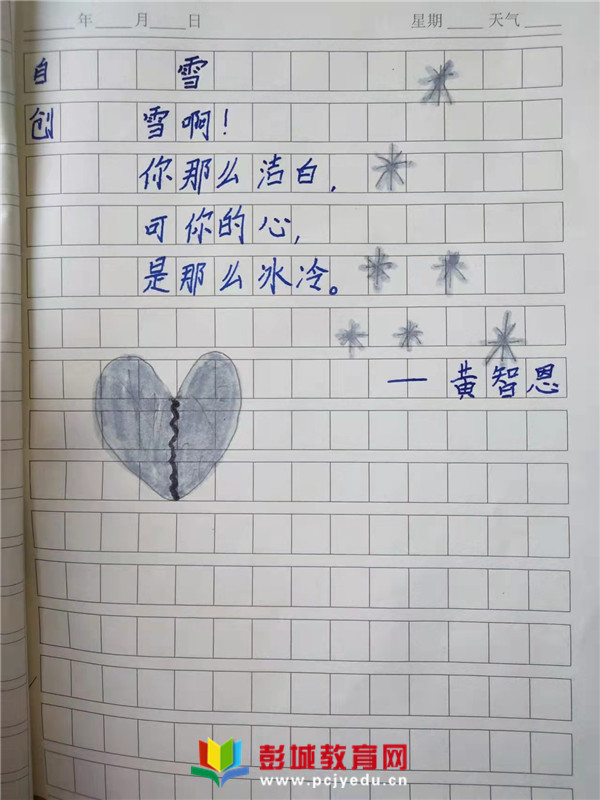 年 月 日 星期 天气
自 雪
创 雪啊！
你那么洁白，
可你的心，
是那么冰冷。
— 黄智恩
彭城教育网
www.pcjyedu.cn